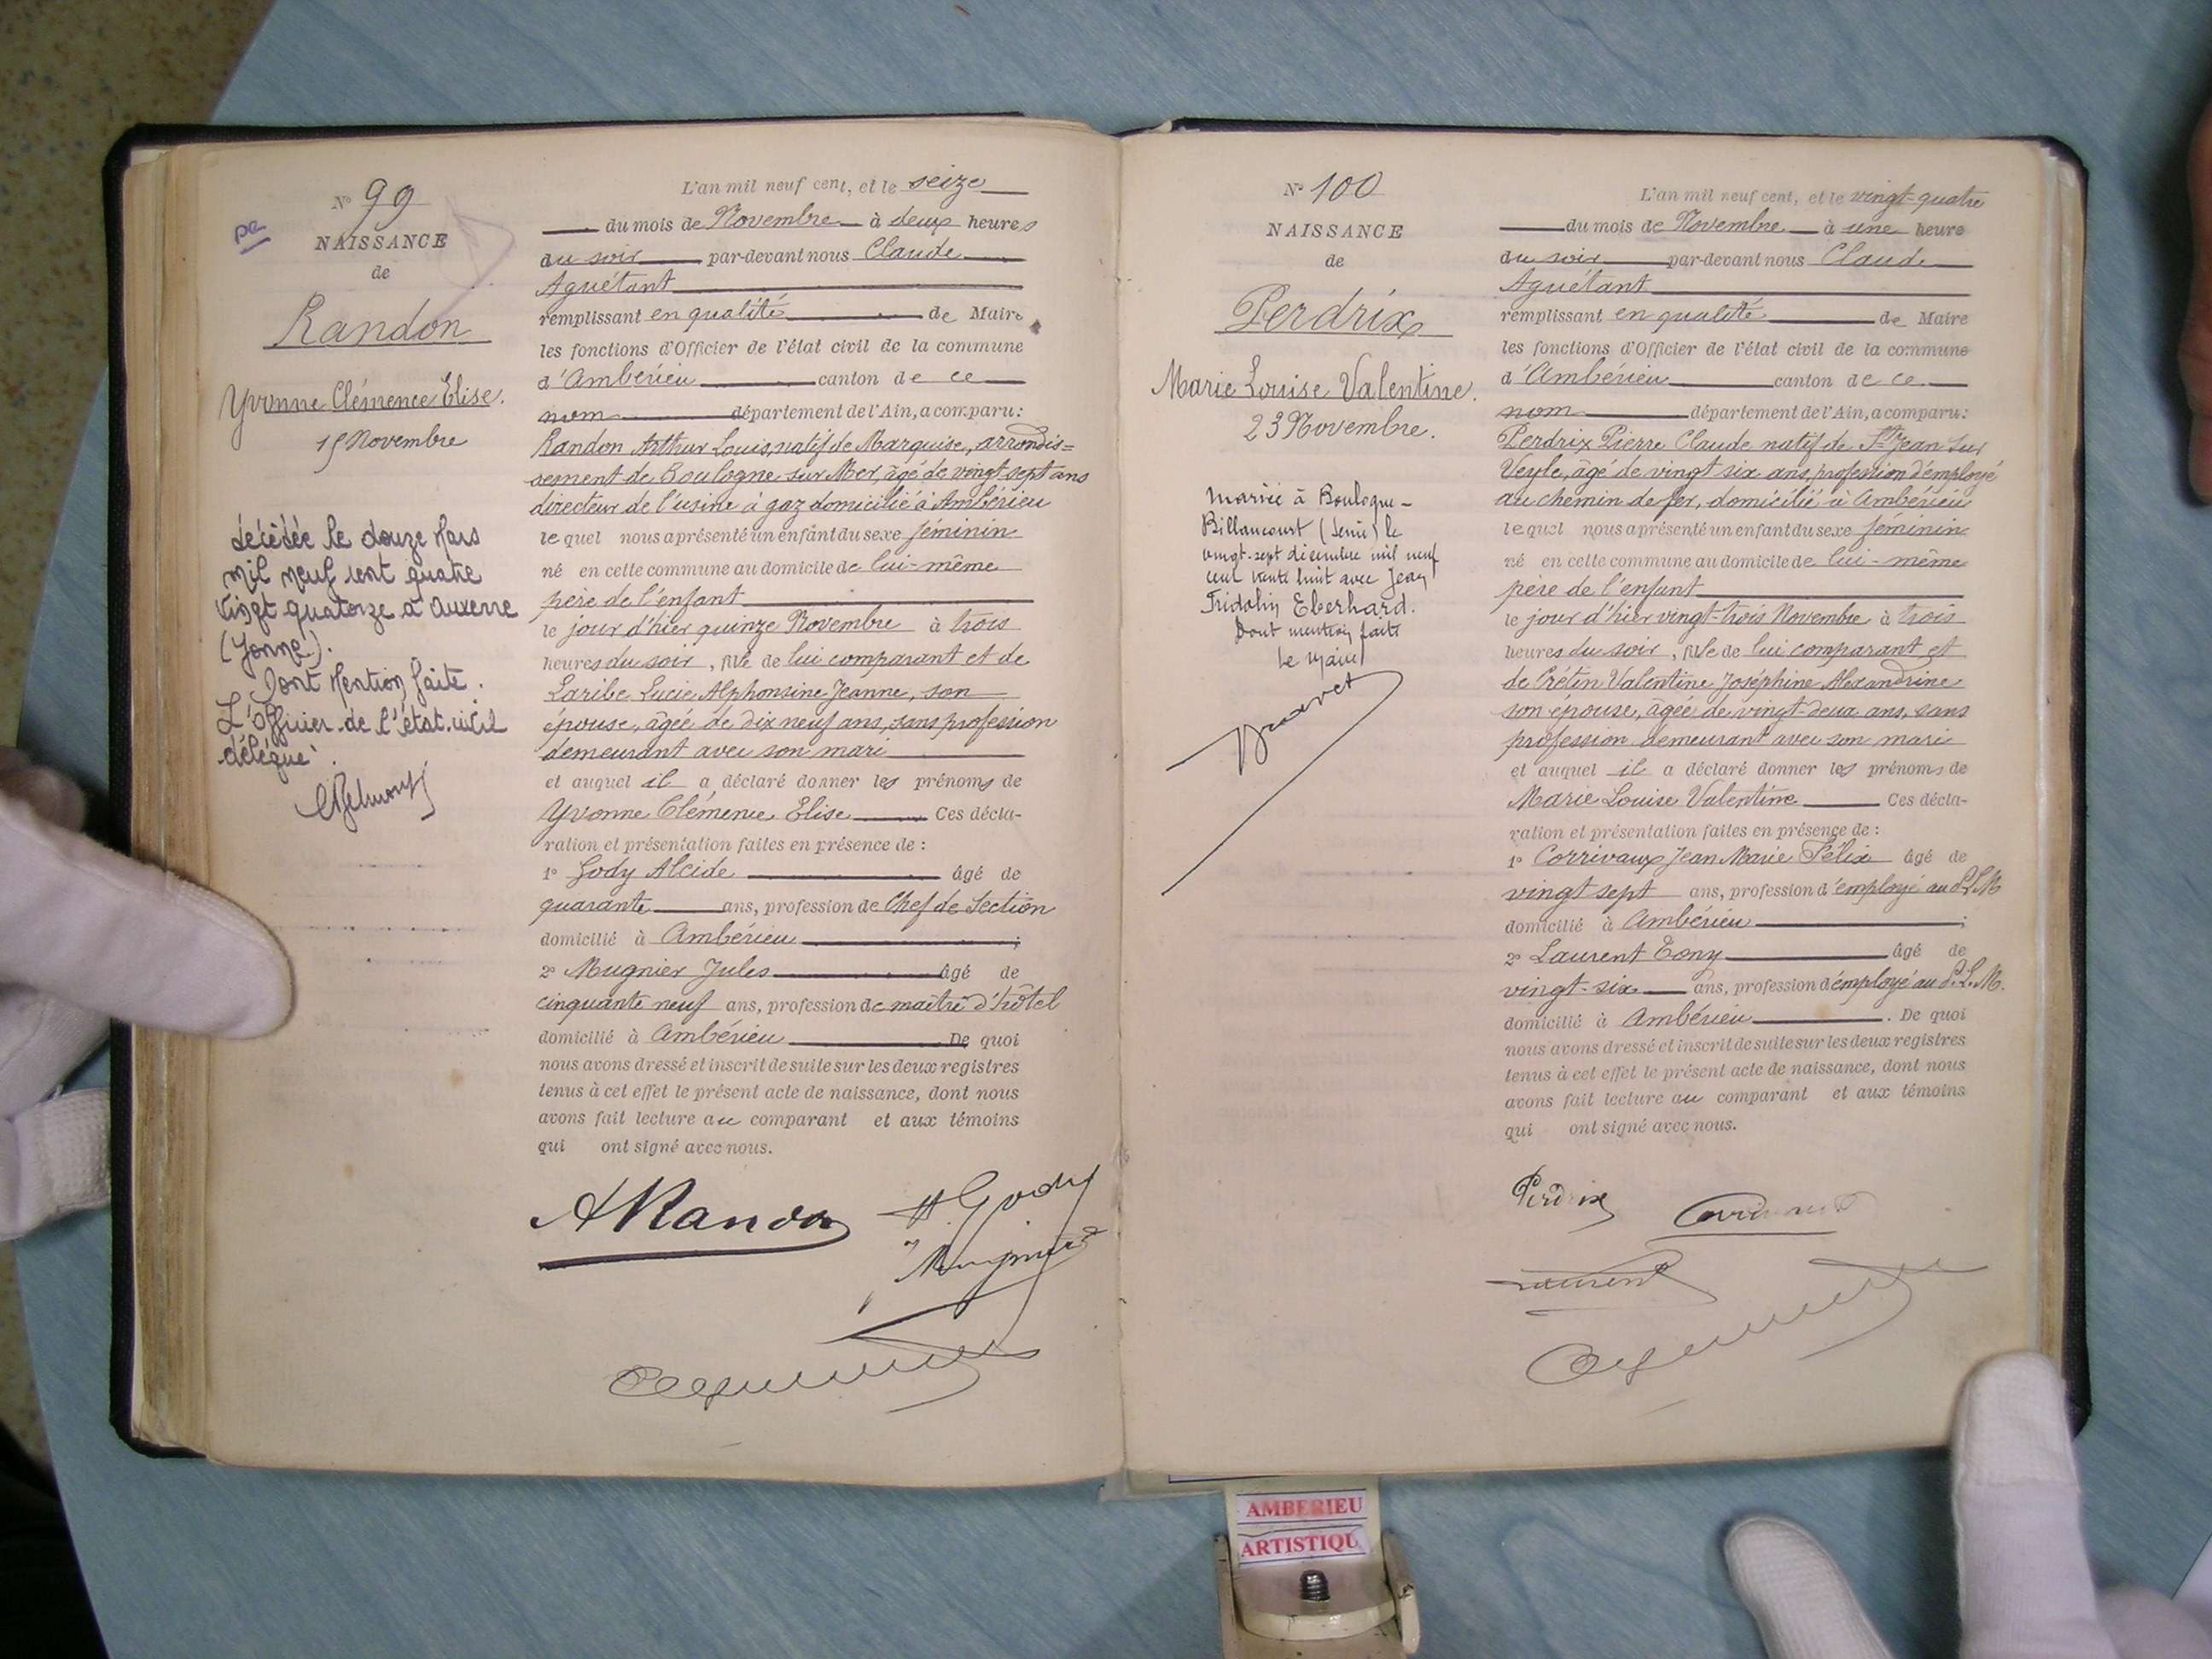 N° 99
pr
NAISSANCE
de
Randon
Yvonne Clémence Elise.
15 Novembre
décédée le douze Mars
mil neuf cent quatre
vingt quatorze à Auxerre
(Yonne).
Dont Mention faite.
L'Officier de l'état civil
délégué.
L'an mil neuf cent, et le seize
du mois de Novembre à deux heures
du soir par-devant nous Claude
Aguétant
remplissant en qualité de Maire
les fonctions d'Officier de l'état civil de la commune
d'Ambérieu canton de ce
nom département de l'Ain, a comparu:
Randon Arthur Louis, natif de Marquise, arrondis=
sement de Boulogne sur Mer, âgé de vingt sept ans
directeur de l'usine à gaz domicilié à Ambérieu
lequel nous a présenté un enfant du sexe féminin
né en cette commune au domicile de lui-même
père de l'enfant
le jour d'hier quinze Novembre à trois
heures du soir, fille de lui comparant et de
Laribe Lucie Alphonsine Jeanne, son
épouse, âgée de dix neuf ans, sans profession
demeurant avec son mari
et auquel il a déclaré donner les prénoms de
Yvonne Clémence Elise Ces décla-
ration et présentation faites en présence de :
1° Gody Alcide âgé de
quarante ans, profession de Chef de Section
domicilié à Ambérieu ;
2° Mugnier Jules âgé de
cinquante neuf ans, profession de maître d'hôtel
domicilié à Ambérieu De quoi
nous avons dressé et inscrit de suite sur les deux registres
tenus à cet effet le présent acte de naissance, dont nous
avons fait lecture au comparant et aux témoins
qui ont signé avec nous.
A Randon
A. Gody
J Mugnier
N° 100
NAISSANCE
de
Perdrix
Marie Louise Valentine.
23 Novembre.
Mariée à Boulogne-
Billancourt (Seine) le
vingt-sept décembre mil neuf
cent trente huit avec Jean
Fridolin Eberhard.
Dont mention faite
Le Maire
L'an mil neuf cent, et le vingt-quatre
du mois de Novembre à une heure
du soir par-devant nous Claude
Aguétant
remplissant en qualité de Maire
les fonctions d'Officier de l'état civil de la commune
d'Ambérieu canton de ce
nom département de l'Ain, a comparu:
Perdrix Pierre Claude natif de St Jean sur
Veyle, âgé de vingt six ans, profession d'employé
au chemin de fer, domicilié à Ambérieu
lequel nous a présenté un enfant du sexe féminin
né en cette commune au domicile de lui-même
père de l'enfant
le jour d'hier vingt-trois Novembre à trois
heures du soir, fille de lui comparant et
de Crétin Valentine Joséphine Alexandrine
son épouse, âgée de vingt-deux ans, sans
profession demeurant avec son mari
et auquel il a déclaré donner les prénoms de
Marie Louise Valentine Ces décla-
ration et présentation faites en présence de :
1° Corrivaux Jean Marie Félix âgé de
vingt sept ans, profession d'employé au P.L.M
domicilié à Ambérieu ;
2° Laurent Tony âgé de
vingt-six ans, profession d'employé au P.L.M.
domicilié à Ambérieu. De quoi
nous avons dressé et inscrit de suite sur les deux registres
tenus à cet effet le présent acte de naissance, dont nous
avons fait lecture au comparant et aux témoins
qui ont signé avec nous.
Perdrix
Laurent
AMBERIEU
ARTISTIQU